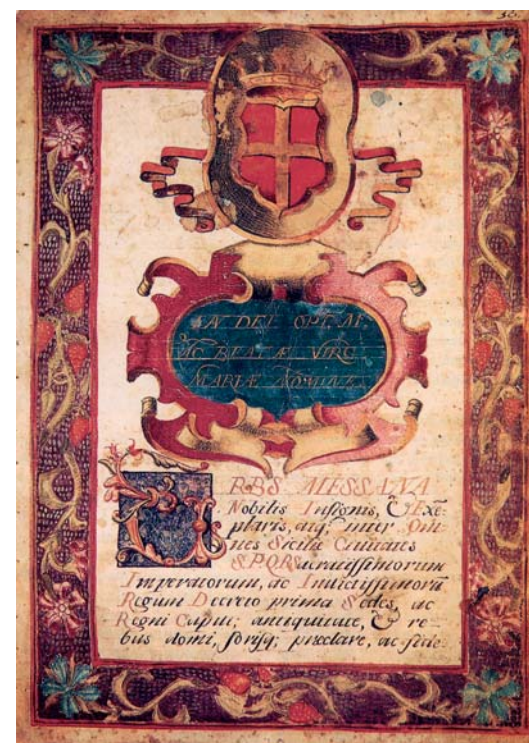 IN DEI OPT. M.
AC BEATÆ VIRG
MARIÆ NOMINE
URBS MESSANA
Nobilis Insignis, & Exē
plaris, atq; inter Om
nes Siciliæ Ciuitates
SPQR Sacratissimorum
Imperatorum, ac Inuictissimorū
Regum Decreto prima Sedes, ac
Regni Caput; antiquitate, & re
bus domi, forisq; præclare, ac fide